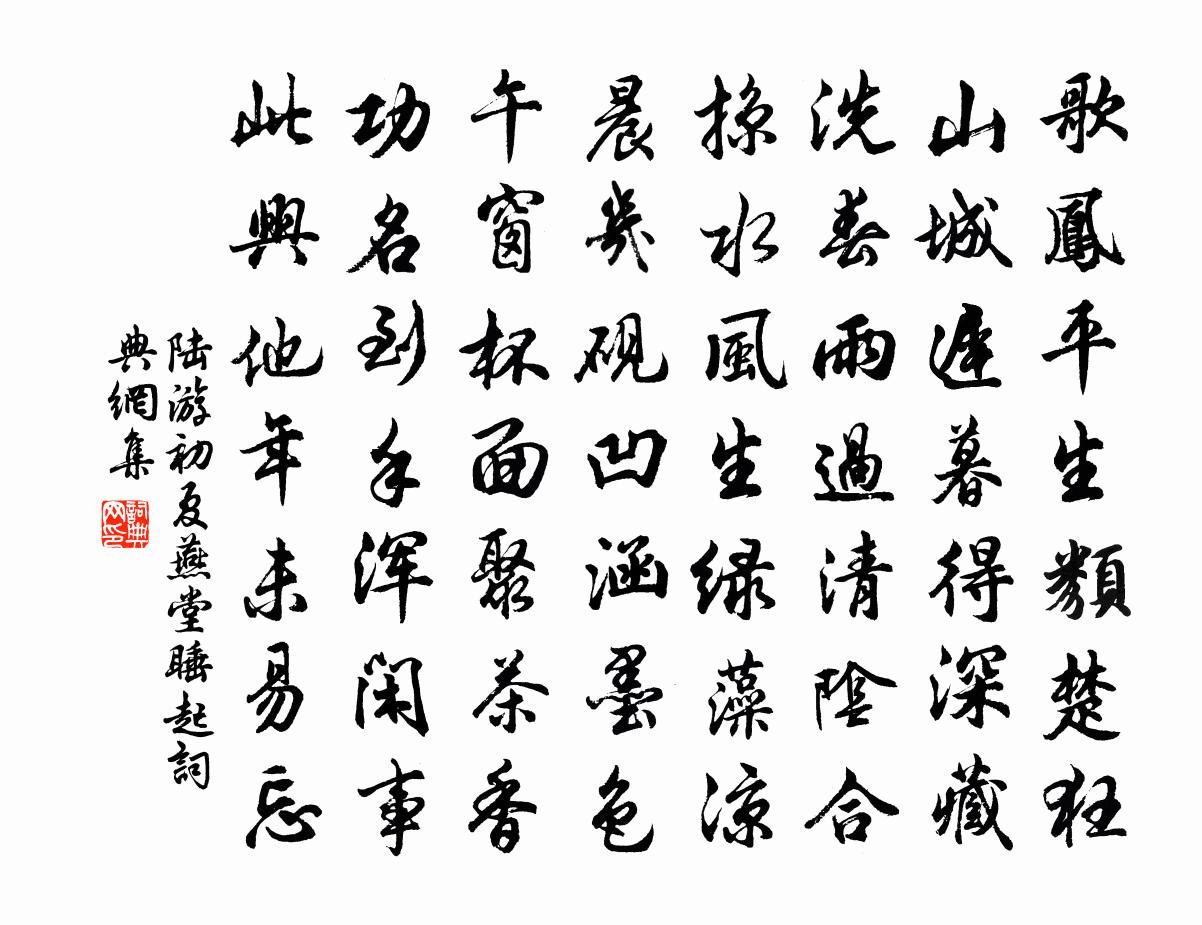 歌鳳平生類楚狂
山城遲暮得深藏
洗春雨過清陰合
掠水風生绿藻涼
晨几硯凹涵墨色
午窗杯面聚茶香
功名到手浑閑事
此興他年未易忘
陆游初夏燕堂睡起詞
典網集
詞典
网印